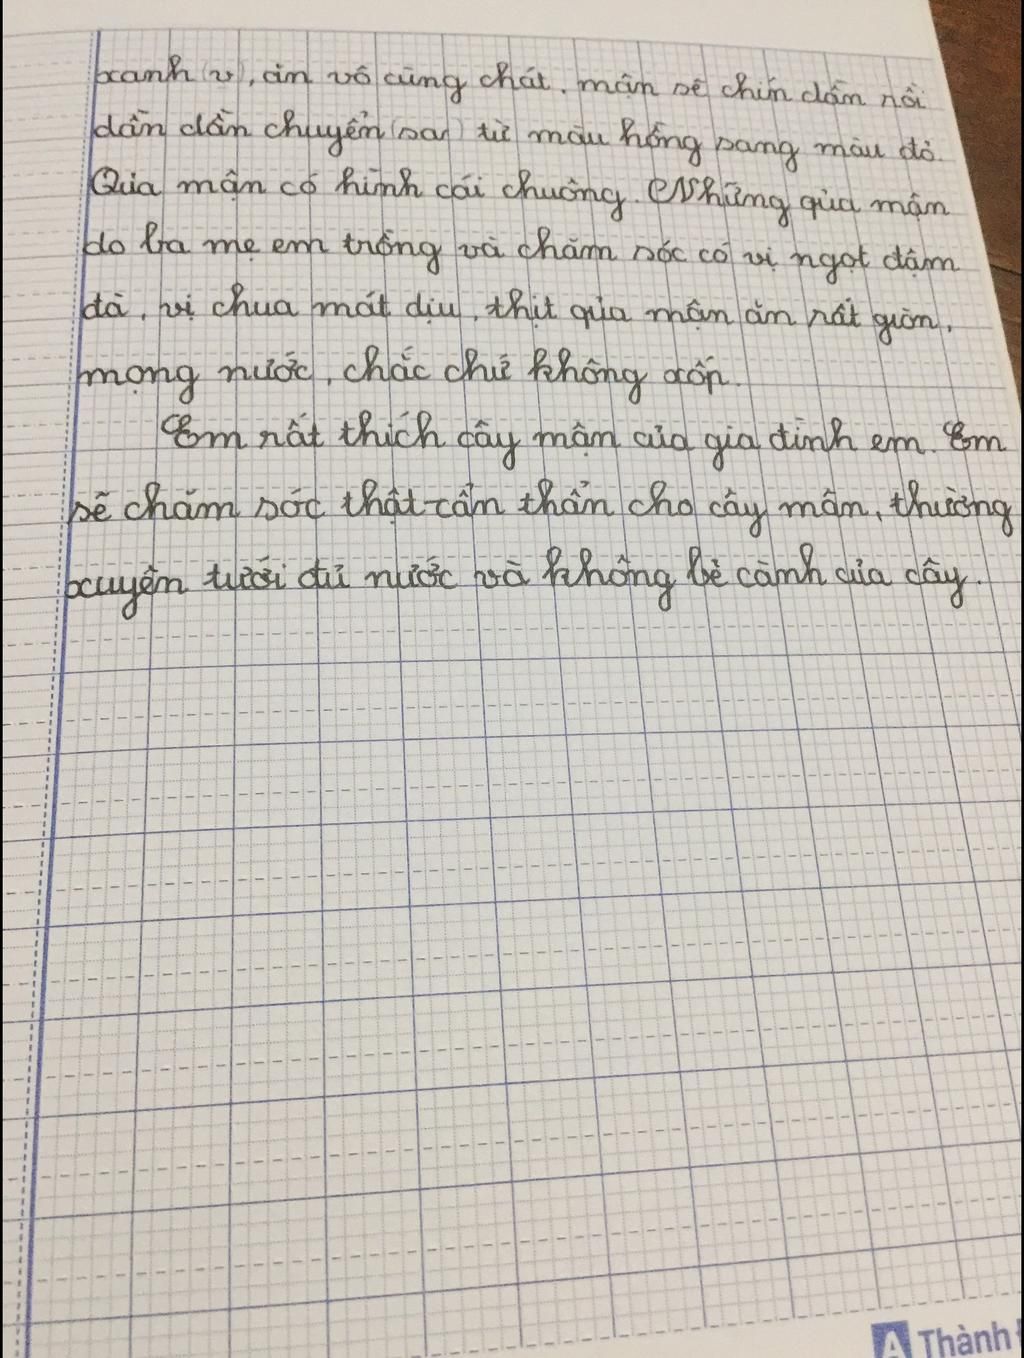 xanh (v), ăn vô cùng chát. mận sẽ chín dần rồi
dần dần chuyển (san) từ màu hồng sang màu đỏ.
Qủa mận có hình cái chuông. Những qủa mận
do ba mẹ em trồng và chăm sóc có vị ngọt đậm
đà, vị chua mát dịu, thịt qủa mận ăn rất giòn,
mọng nước, chắc chứ không xốp.
Em rất thích cây mận của gia đình em. Em
sẽ chăm sóc thật cẩn thẩn cho cây mận, thường
xuyên tưới đủ nước và không bẻ cành của cây.
A Thành